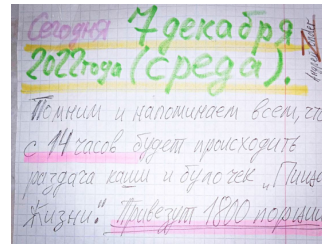 Сегодня 7 декабря
2022 года (среда).
Помним и напоминаем всем, что
с 14 часов будет происходить
раздача каши и булочек „Пища
Жизни." Привезут 1800 порций